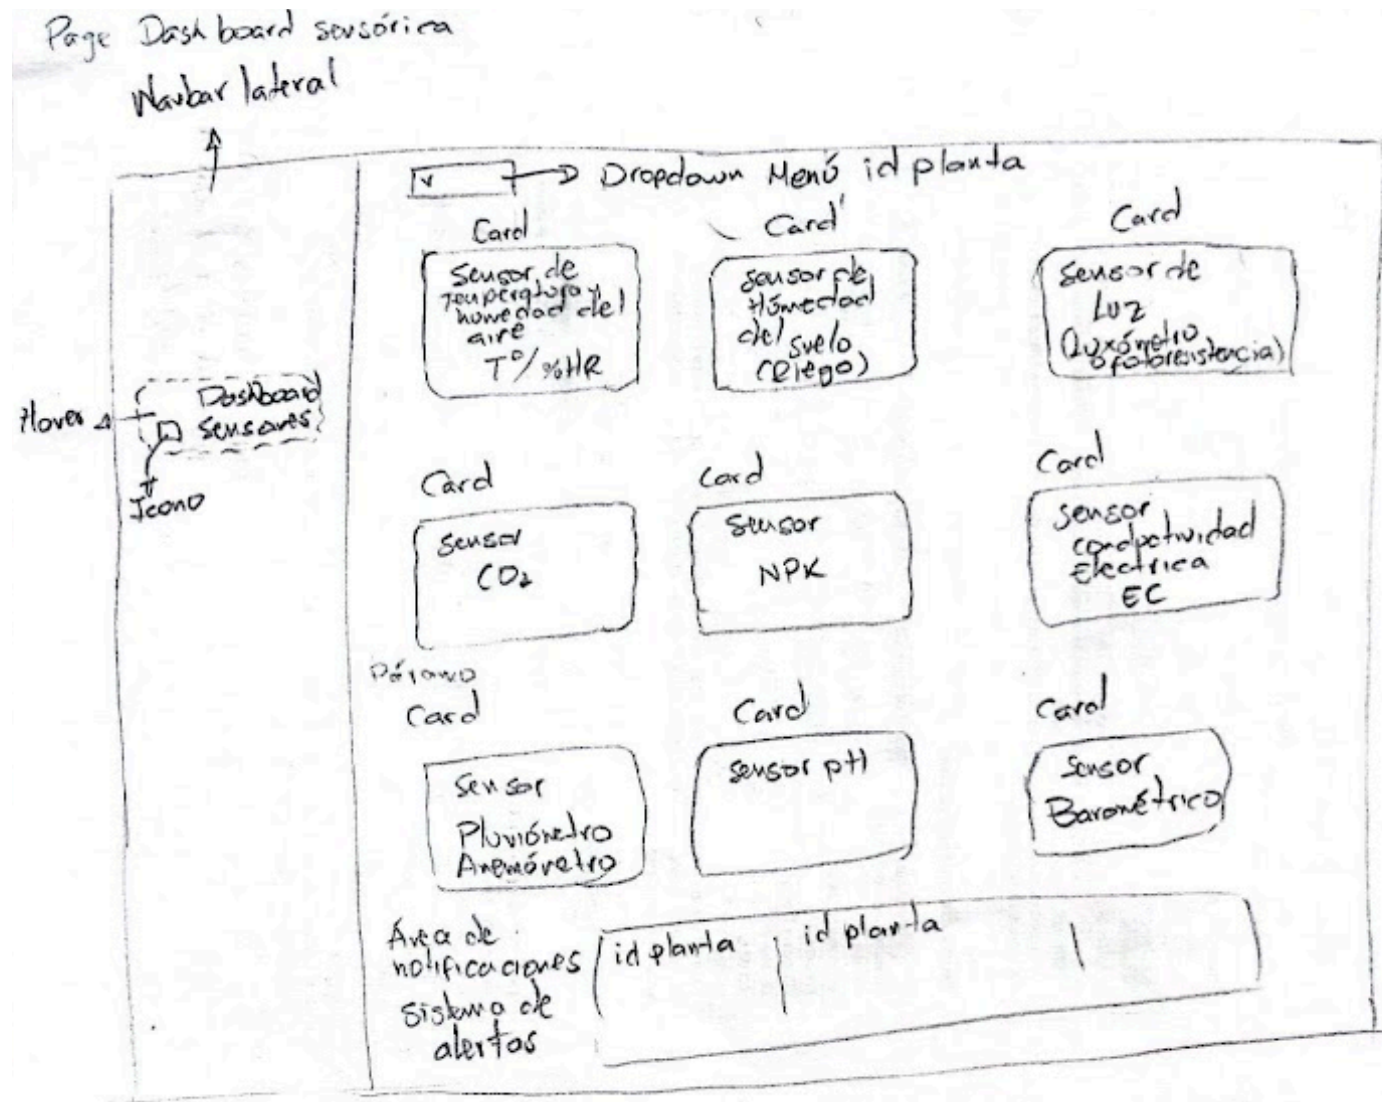 Page Dashboard sensórica
Navbar lateral
Dropdown Menú id planta
Card
Sensor de
Temperatura y
humedad del
aire
T°/%HR
Card
Sensor de
Húmedad
del
suelo
(Riego)
Card
Sensor de
Luz
(Luxómetro
o fotoresistencia)
Hover
Dashboard
Sensores
Icono
Card
Sensor
CO2
Card
Sensor
NPK
Card
Sensor
Electrica
EC
Páramo
Card
Sensor
Pluviómetro
Anemómetro
Card
Sensor pH
Card
Sensor
Barométrico
Área de
notificaciones
sistema de
alertas
id planta
id planta